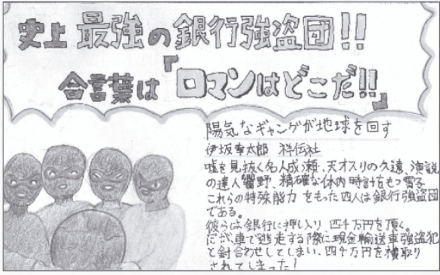 史上最強の銀行強盗団!!
合言葉は『ロマンはどこだ!!』
陽気なギャングが地球を回す
伊坂幸太郎 祥伝社
嘘を見抜く名人成瀬、天才スリの久遠、演説
の達人響野、精確な体内時計をもつ雪子
これらの特殊能力をもった四人は銀行強盗団
である。
彼らは銀行に押し入り、四千万円を頂く。
だが、車で逃走する際に現金輸送車強盗犯
と鉢合わせしてしまい、四千万円を横取り
されてしまった!